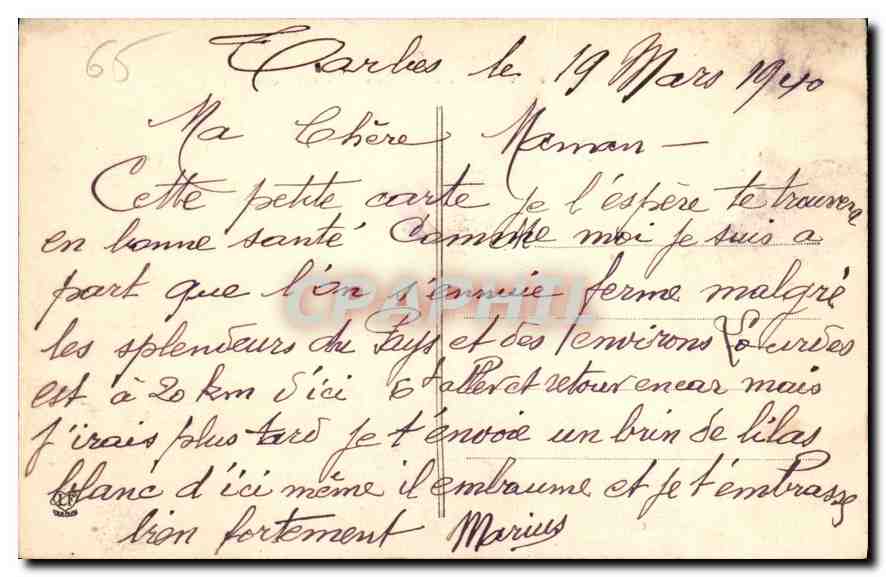 65
Tarbes le 19 Mars 1940
Ma Chère Maman -
Cette petite carte je l'espère te trouvera
en bonne santé Comme moi je suis a
part que l'on s'ennuie ferme malgré
les splendeurs du Pays et des environs Lourdes
est à 20 km d'ici 6t aller et retour en car mais
j'irais plus tard je t'envoie un brin de lilas
blanc d'ici même il embaume et je t'embrasse
bien fortement Marius
CPAPHIL